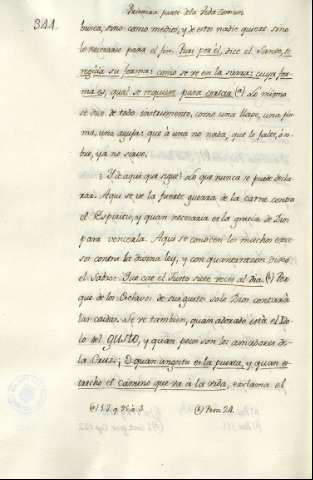 Primera parte de la Vida comun
344.
busca, sino como medios; y de estos nadie quiere sino
lo necesario para el fin. Pues por él, dice el Santo, se
regula su forma: como se ve en la sierra: cuya for-
ma es, qual se requiere para cortar (a) Lo mismo
se dice de todo instrumento, como una llave, una plu-
ma, una aguja: que à una no nada, que le falte, ó so-
bre, ya no sirve.
¿Y de aqui que sigue? sino que nunca se puede decla-
rar. Aqui se ve la fuerte guerra de la carne contra
el Espiritu, y quan necesaria es la gracia de Dios
para vencerla. Aqui se conocen los muchos exce-
sos contra la divina ley, y con quanta razon dixo
el Sabio: Que cae el Justo siete veces al dia. (b) Por
que de los Esclavos de su gusto solo Dios contará
las caidas. Se ve tambien, quan adorado está el Ido-
lo del GUSTO, y quan pocos son los amadores de
la Cruz. ¡O quan angosta es la puerta, y quan es-
trecho el camino que va à la vida, exclama el
(a) 1. 2. q. 95. a. 3
(b) Prov. 24.